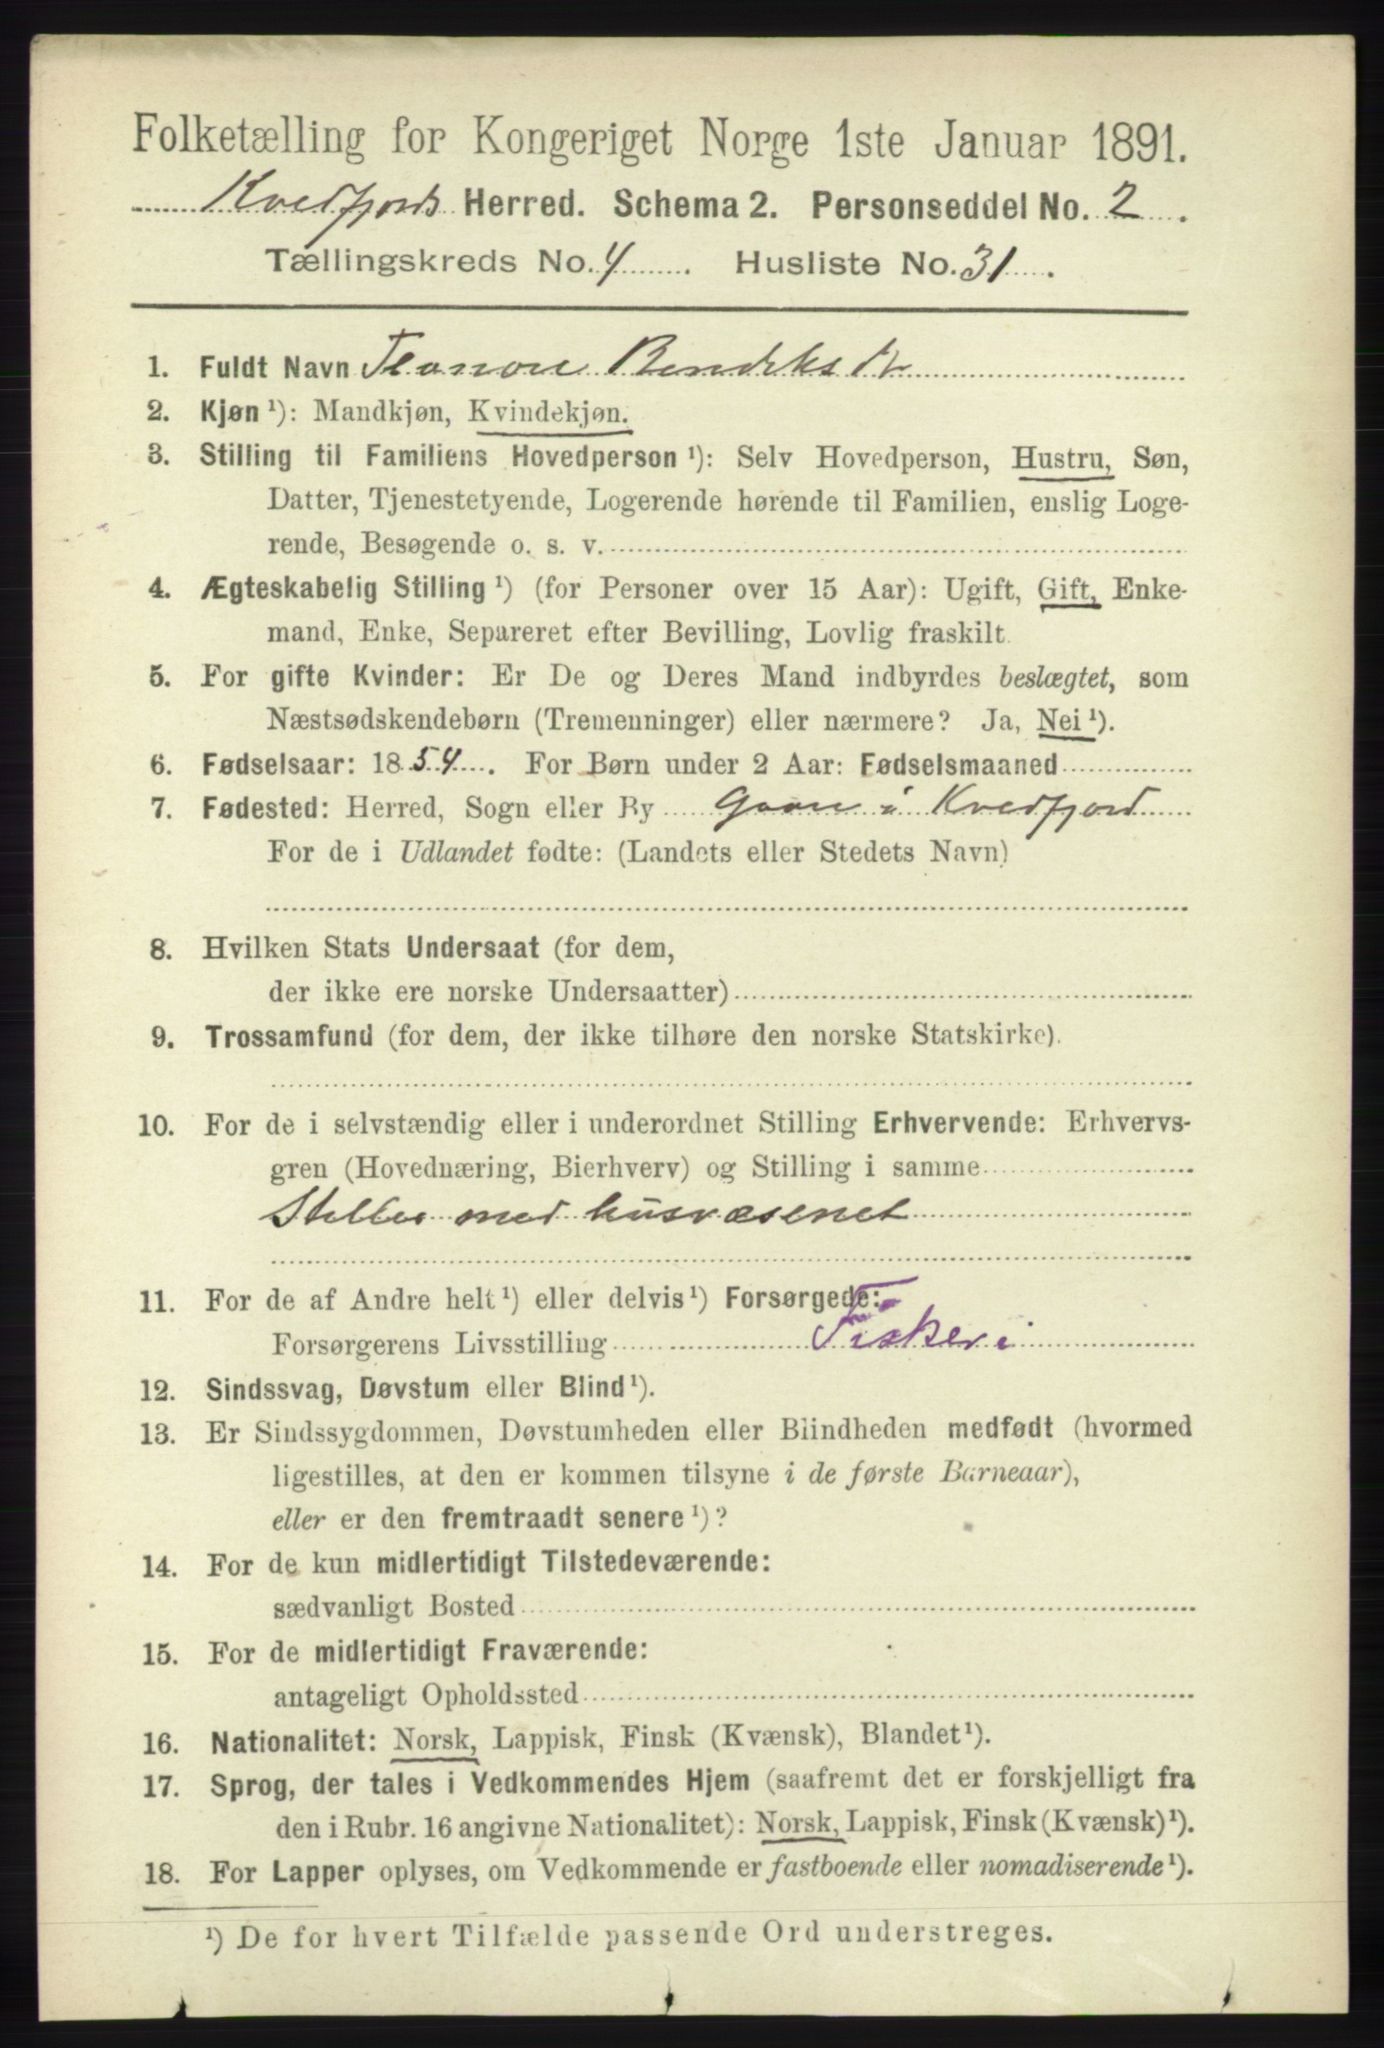 Folketælling for Kongeriget Norge 1ste Januar 1891.
Kvedfjords Herred. Schema 2. Personseddel No. 2.
Tællingskreds No. 4. Husliste No. 31.
1. Fuldt Navn Bendiks Dr
2. Kjøn ¹): Mandkjøn, Kvindekjøn.
3. Stilling til Familiens Hovedperson ¹): Selv Hovedperson, Hustru, Søn,
Datter, Tjenestetyende, Logerende hørende til Familien, enslig Loge-
rende, Besøgende o. s. v.
4. Ægteskabelig Stilling ¹) (for Personer over 15 Aar): Ugift, Gift, Enke-
mand, Enke, Separeret efter Bevilling, Lovlig fraskilt.
5. For gifte Kvinder: Er De og Deres Mand indbyrdes beslægtet, som
Næstsødskendebørn (Tremenninger) eller nærmere? Ja, Nei ¹).
6. Fødselsaar: 1854. For Børn under 2 Aar: Fødselsmaaned
7. Fødested: Herred, Sogn eller By i Kvedfjord
For de i Udlandet fødte: (Landets eller Stedets Navn)
8. Hvilken Stats Undersaat (for dem,
der ikke ere norske Undersaatter)
9. Trossamfund (for dem, der ikke tilhøre den norske Statskirke).
10. For de i selvstændig eller i underordnet Stilling Erhvervende: Erhvervs-
gren (Hovednæring, Bierhverv) og Stilling i samme
Steller med husvæsenet
11. For de af Andre helt ¹) eller delvis ¹) Forsørgede:
Forsørgerens Livsstilling Fiskeri
12. Sindssvag, Døvstum eller Blind ¹).
13. Er Sindssygdommen, Døvstumheden eller Blindheden medfødt (hvormed
ligestilles, at den er kommen tilsyne i de første Barneaar),
eller er den fremtraadt senere ¹)?
14. For de kun midlertidigt Tilstedeværende:
sædvanligt Bosted
15. For de midlertidigt Fraværende:
antageligt Opholdssted
16. Nationalitet: Norsk, Lappisk, Finsk (Kvænsk), Blandet ¹).
17. Sprog, der tales i Vedkommendes Hjem (saafremt det er forskjelligt fra
den i Rubr. 16 angivne Nationalitet): Norsk, Lappisk, Finsk (Kvænsk) ¹).
18. For Lapper oplyses, om Vedkommende er fastboende eller nomadiserende ¹).
¹) De for hvert Tilfælde passende Ord understreges.